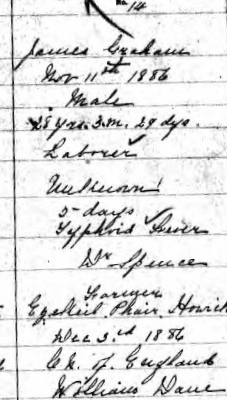 No. 14
James Graham
Nov 11th 1886
Male
28 yrs. 3. m. 29 dys.
Laborer
Unknown
5 days
Typhoid Fever
Dr Spence
Farmer
Ezekiel Phair, Howick
Dec 3.rd 1886
Ch. of England
William Dane